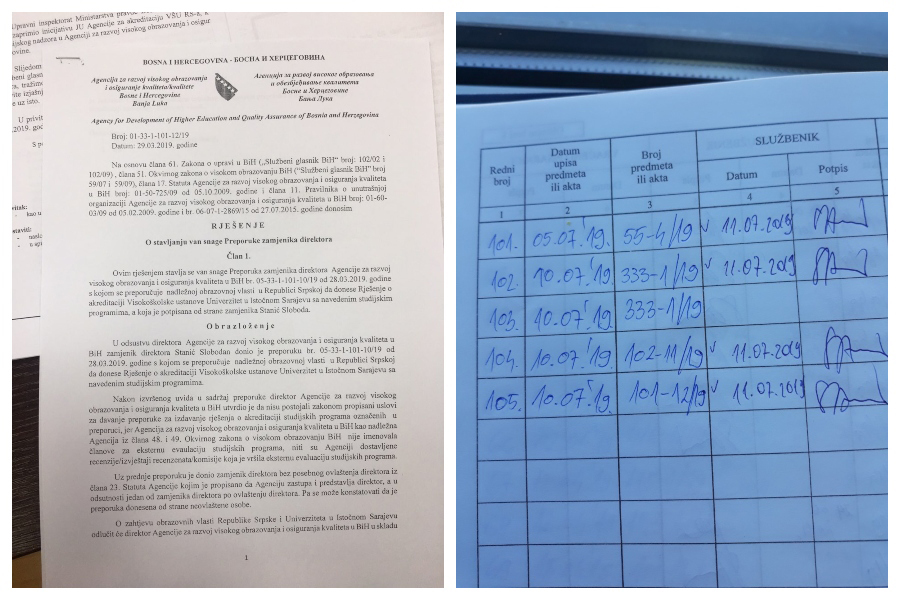 Upravni inspektorat Ministarstva
zaprimio inicijativu JU Agencije za akreditaciju VŠU RS-a,
nadzora u Agenciji za razvoj visokog obrazovanja i
Slijedom
U privit
2019.
BOSNA I HERCEGOVINA - БОСНА И ХЕРЦЕГОВИНА
Agencija za razvoj visokog obrazovanja
i osiguranje kvaliteta/kvalitete
Bosne i Hercegovine
Banja Luka
Агенција за развој високог образовања
и обезбјеђивање квалитета
Босне и Херцеговине
Бања Лука
Agency for Development of Higher Education and Quality Assurance of Bosnia and Herzegovina
Broj: 01-33-1-101-12/19
Datum: 29.03.2019. godine
Na osnovu člana 61. Zakona o upravi u BiH („Službeni glasnik BiH“ broj: 102/02 i
102/09), člana 51. Okvirnog zakona o visokom obrazovanju BiH (“Službeni glasnik BiH” broj
59/07 i 59/09), člana 17. Statuta Agencije za razvoj visokog obrazovanja i osiguranja kvaliteta
u BiH broj: 01-50-725/09 od 05.10.2009. godine i člana 11. Pravilnika o unutrašnjoj
organizaciji Agencije za razvoj visokog obrazovanja i osiguranja kvaliteta u BiH broj: 01-60-
03/09 od 05.02.2009. godine i br. 06-07-1-2869/15 od 27.07.2015. godine donosim
R J E Š E N J E
O stavljanju van snage Preporuke zamjenika direktora
Član 1.
Ovim rješenjem stavlja se van snage Preporuka zamjenika direktora Agencije za razvoj
visokog obrazovanja i osiguranja kvaliteta u BiH br. 05-33-1-101-10/19 od 28.03.2019. godine
s kojom se preporučuje nadležnoj obrazovnoj vlasti u Republici Srpskoj da donese Rješenje o
akreditaciji Visokoškolske ustanove Univerzitet u Istočnom Sarajevu sa navedenim studijskim
programima, a koja je potpisana od strane zamjenika Stanić Sloboda.
O b r a z l o ž e n j e
U odsustvu direktora Agencije za razvoj visokog obrazovanja i osiguranja kvaliteta u
BiH zamjenik direktora Stanić Slobodan donio je preporuku br. 05-33-1-101-10/19 od
28.03.2019. godine s kojom se preporučuje nadležnoj obrazovnoj vlasti u Republici Srpskoj
da donese Rješenje o akreditaciji Visokoškolske ustanove Univerzitet u Istočnom Sarajevu sa
navedenim studijskim programima.
Nakon izvršenog uvida u sadržaj preporuke direktor Agencije za razvoj visokog
obrazovanja i osiguranja kvaliteta u BiH utvrdio je da nisu postojali zakonom propisani uslovi
za davanje preporuke za izdavanje rješenja o akreditaciji studijskih programa označenih u
preporuci, jer Agencija za razvoj visokog obrazovanja i osiguranja kvaliteta u BiH kao nadležna
Agencija iz člana 48. i 49. Okvirnog zakona o visokom obrazovanju BiH nije imenovala
članove za eksternu evaulaciju studijskih programa, niti su Agenciji dostavljene
recenzije/izvještaji recenzenata/komisije koja je vršila eksternu evaluaciju studijskih programa.
Uz prednje preporuku je donio zamjenik direktora bez posebnog ovlaštenja direktora iz
člana 23. Statuta Agencije kojim je propisano da Agenciju zastupa i predstavlja direktor, a u
odsutnosti jedan od zamjenika direktora po ovlaštenju direktora. Pa se može konstatovati da je
preporuka donesena od strane neovlaštene osobe.
O zahtjevu obrazovnih vlasti Republike Srpske i Univerziteta u Istočnom Sarajevu
odlučit će direktor Agencije za razvoj visokog obrazovanja i osiguranja kvaliteta u BiH u skladu
1
Redni broj
Datum upisa predmeta ili akta
Broj predmeta ili akta
SLUŽBENIK
Datum
Potpis
1 2 3 4 5
101. 05.07.'19. 55-4/19 11.07.2019
102. 10.07.'19. 333-1/19 11.07.2019
103. 10.07.'19. 333-1/19
104. 10.07.'19. 102-11/19 11.07.2019
105. 10.07.'19. 101-12/19 11.07.2019